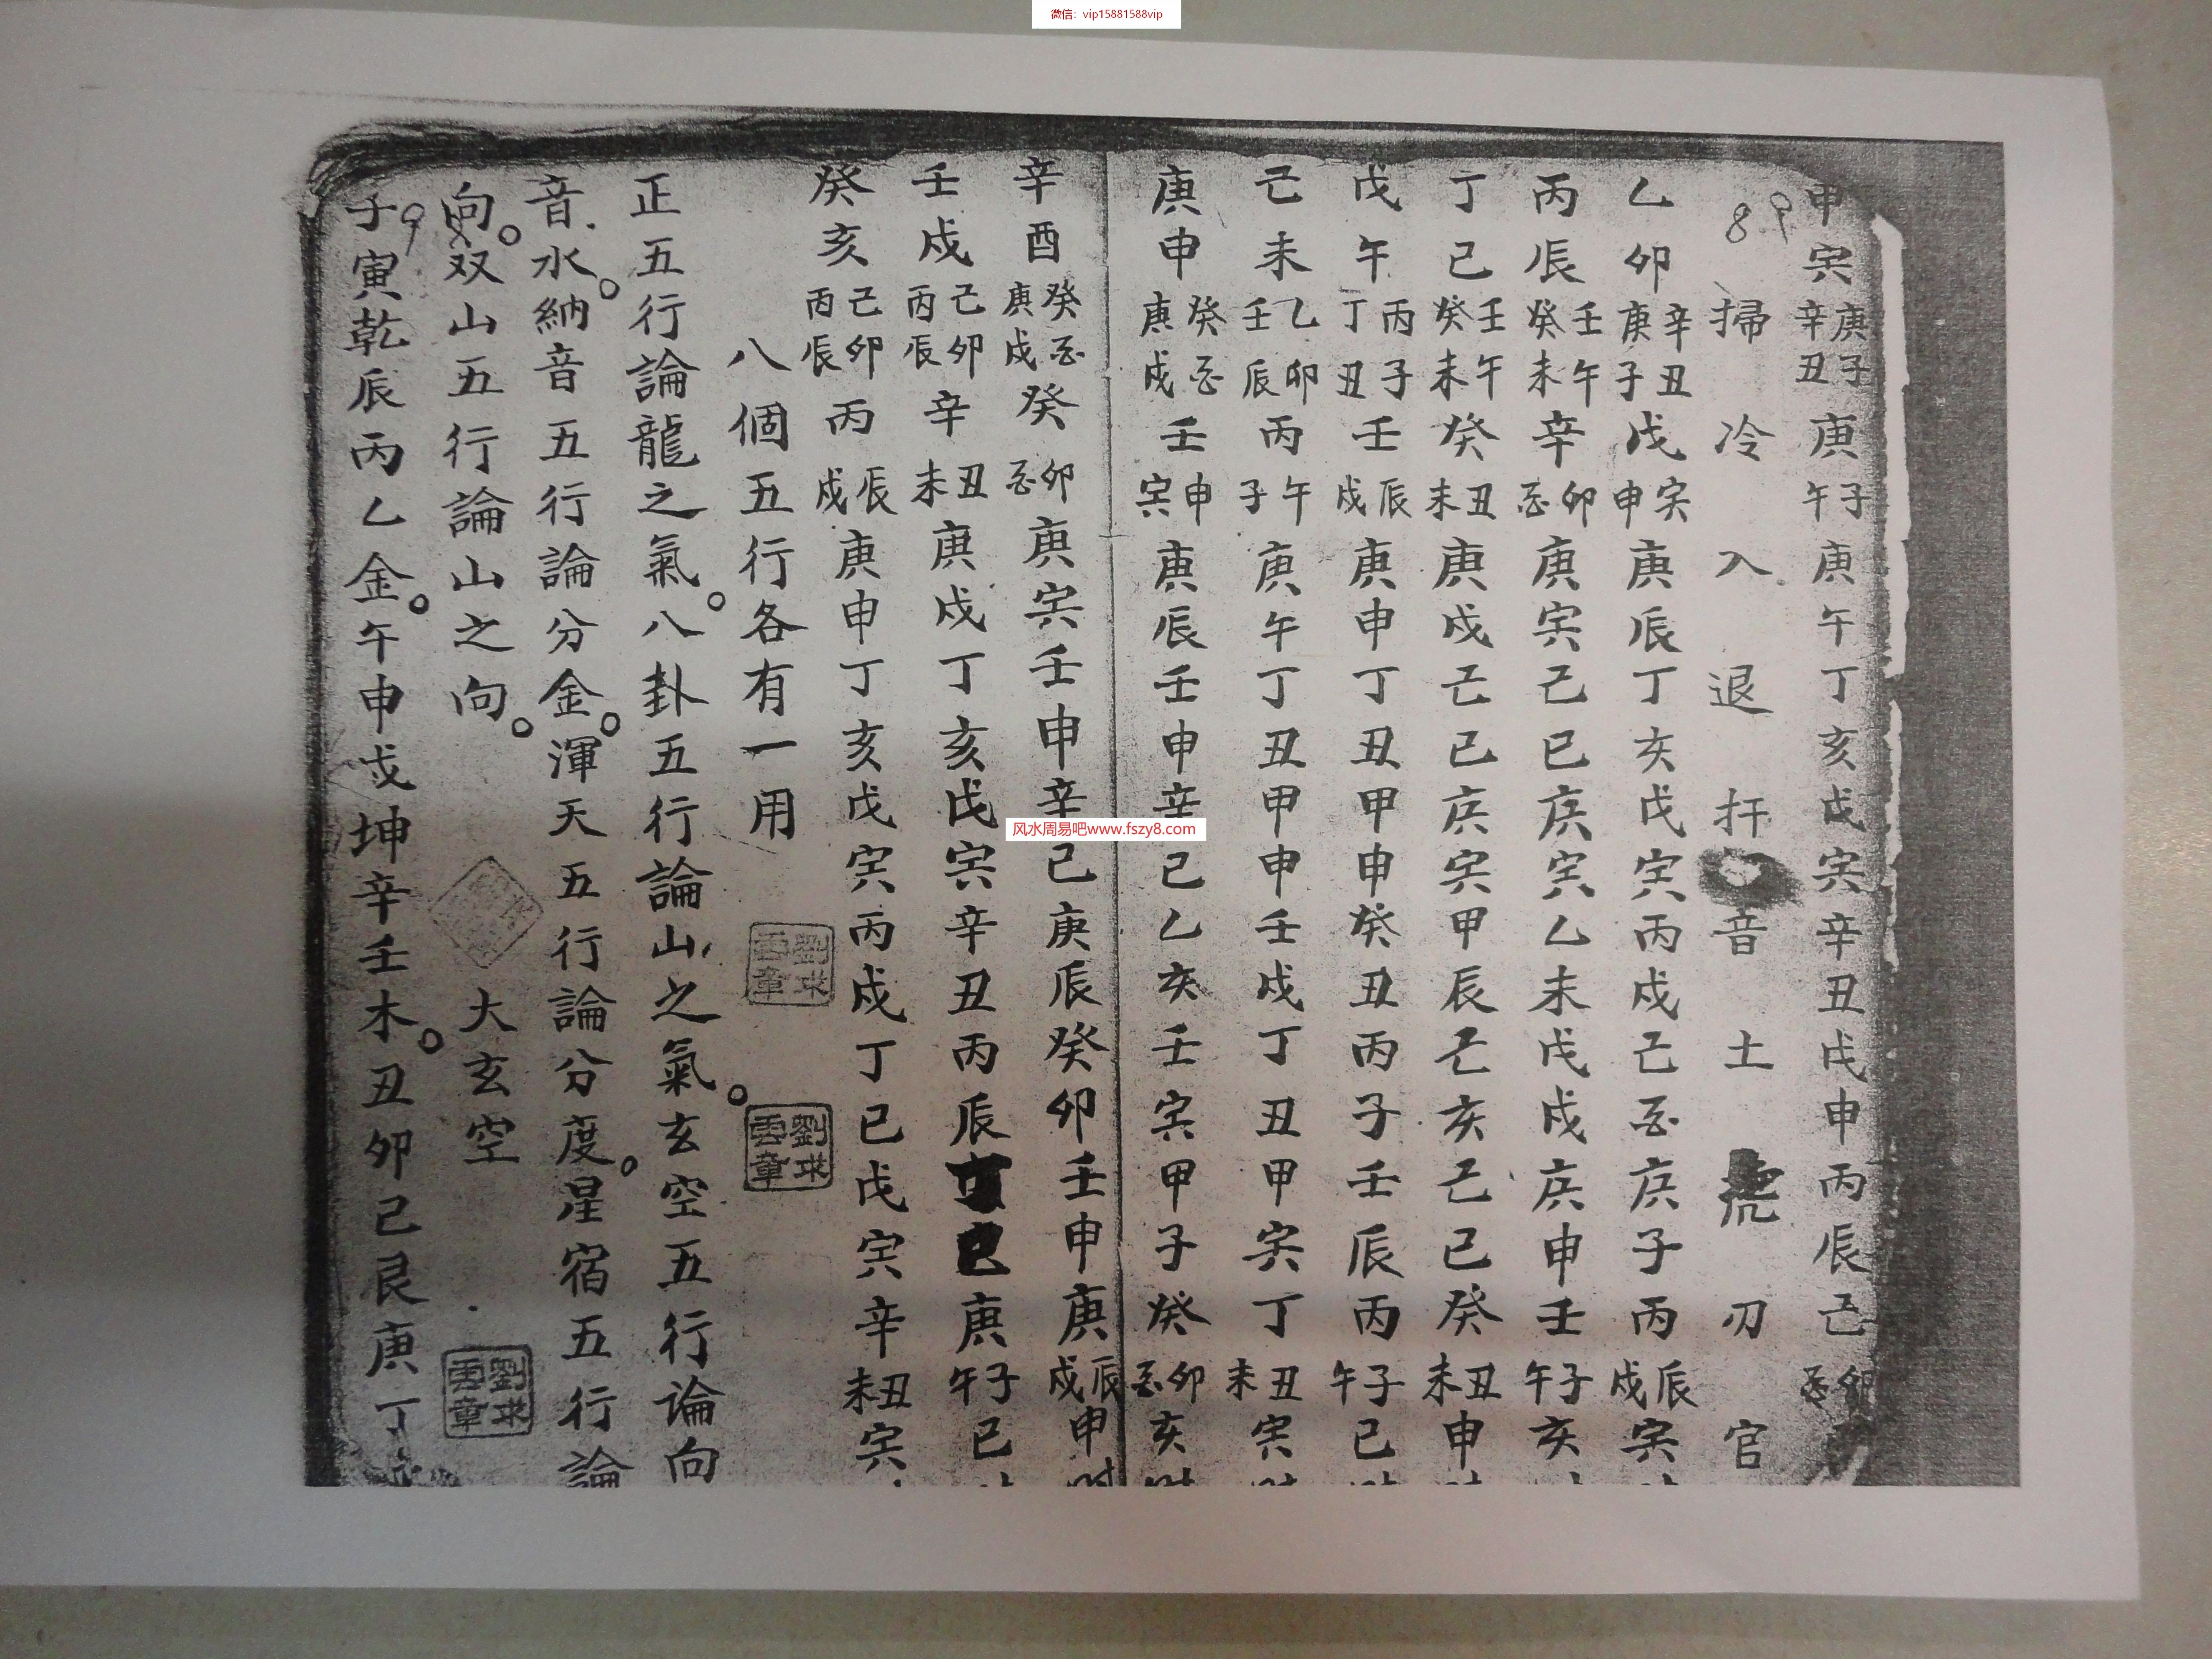 微信：vip15881588vip
甲寅 庚子 辛丑 庚 子午 庚午 丁亥 戊寅 辛丑 戊申 丙辰 己 卯酉
89
掃 冷 入 退 扞 音 土 虎 刃 官
乙卯 辛丑 庚子 戊 寅申 庚辰 丁亥 戊寅 丙戌 己酉 庚子 丙 辰戌 寅
丙辰 壬午 癸未 辛 卯酉 庚寅 己巳 庚寅 乙未 戊戌 庚申 壬 子午 亥
丁巳 壬午 癸未 癸 丑未 庚戌 己巳 庚寅 甲辰 己亥 己巳 癸 丑未 申
戊午 丙子 丁丑 壬 辰戌 庚申 丁丑 甲申 癸丑 丙子 壬辰 丙 子午 巳
己未 乙卯 壬辰 丙 午子 庚午 丁丑 甲申 壬戌 丁丑 甲寅 丁 丑未 寅
庚申 癸酉 庚戌 壬 申寅 庚辰 壬申 辛巳 乙亥 壬寅 甲子 癸 卯酉 亥
辛酉 癸酉 庚戌 癸 卯酉 庚寅 壬申 辛巳 庚辰 癸卯 壬申 庚 辰戌 申
壬戌 己卯 丙辰 辛 丑未 庚戌 丁亥 戊寅 辛丑 丙辰 丁巳 庚 子午 巳
癸亥 己卯 丙辰 丙 辰戌 庚申 丁亥 戊寅 丙戌 丁巳 戊寅 辛 丑未 寅
八個五行各有一用
正五行論龍之氣。八卦五行論山之氣。玄空五行論向
音水。納音五行論分金。渾天五行論分度。星宿五行論
向。双山五行論山之向。 大玄空
子寅乾辰丙乙金。午申戌坤辛壬木。丑卯巳艮庚丁
風水周易吧www.fszy8.com